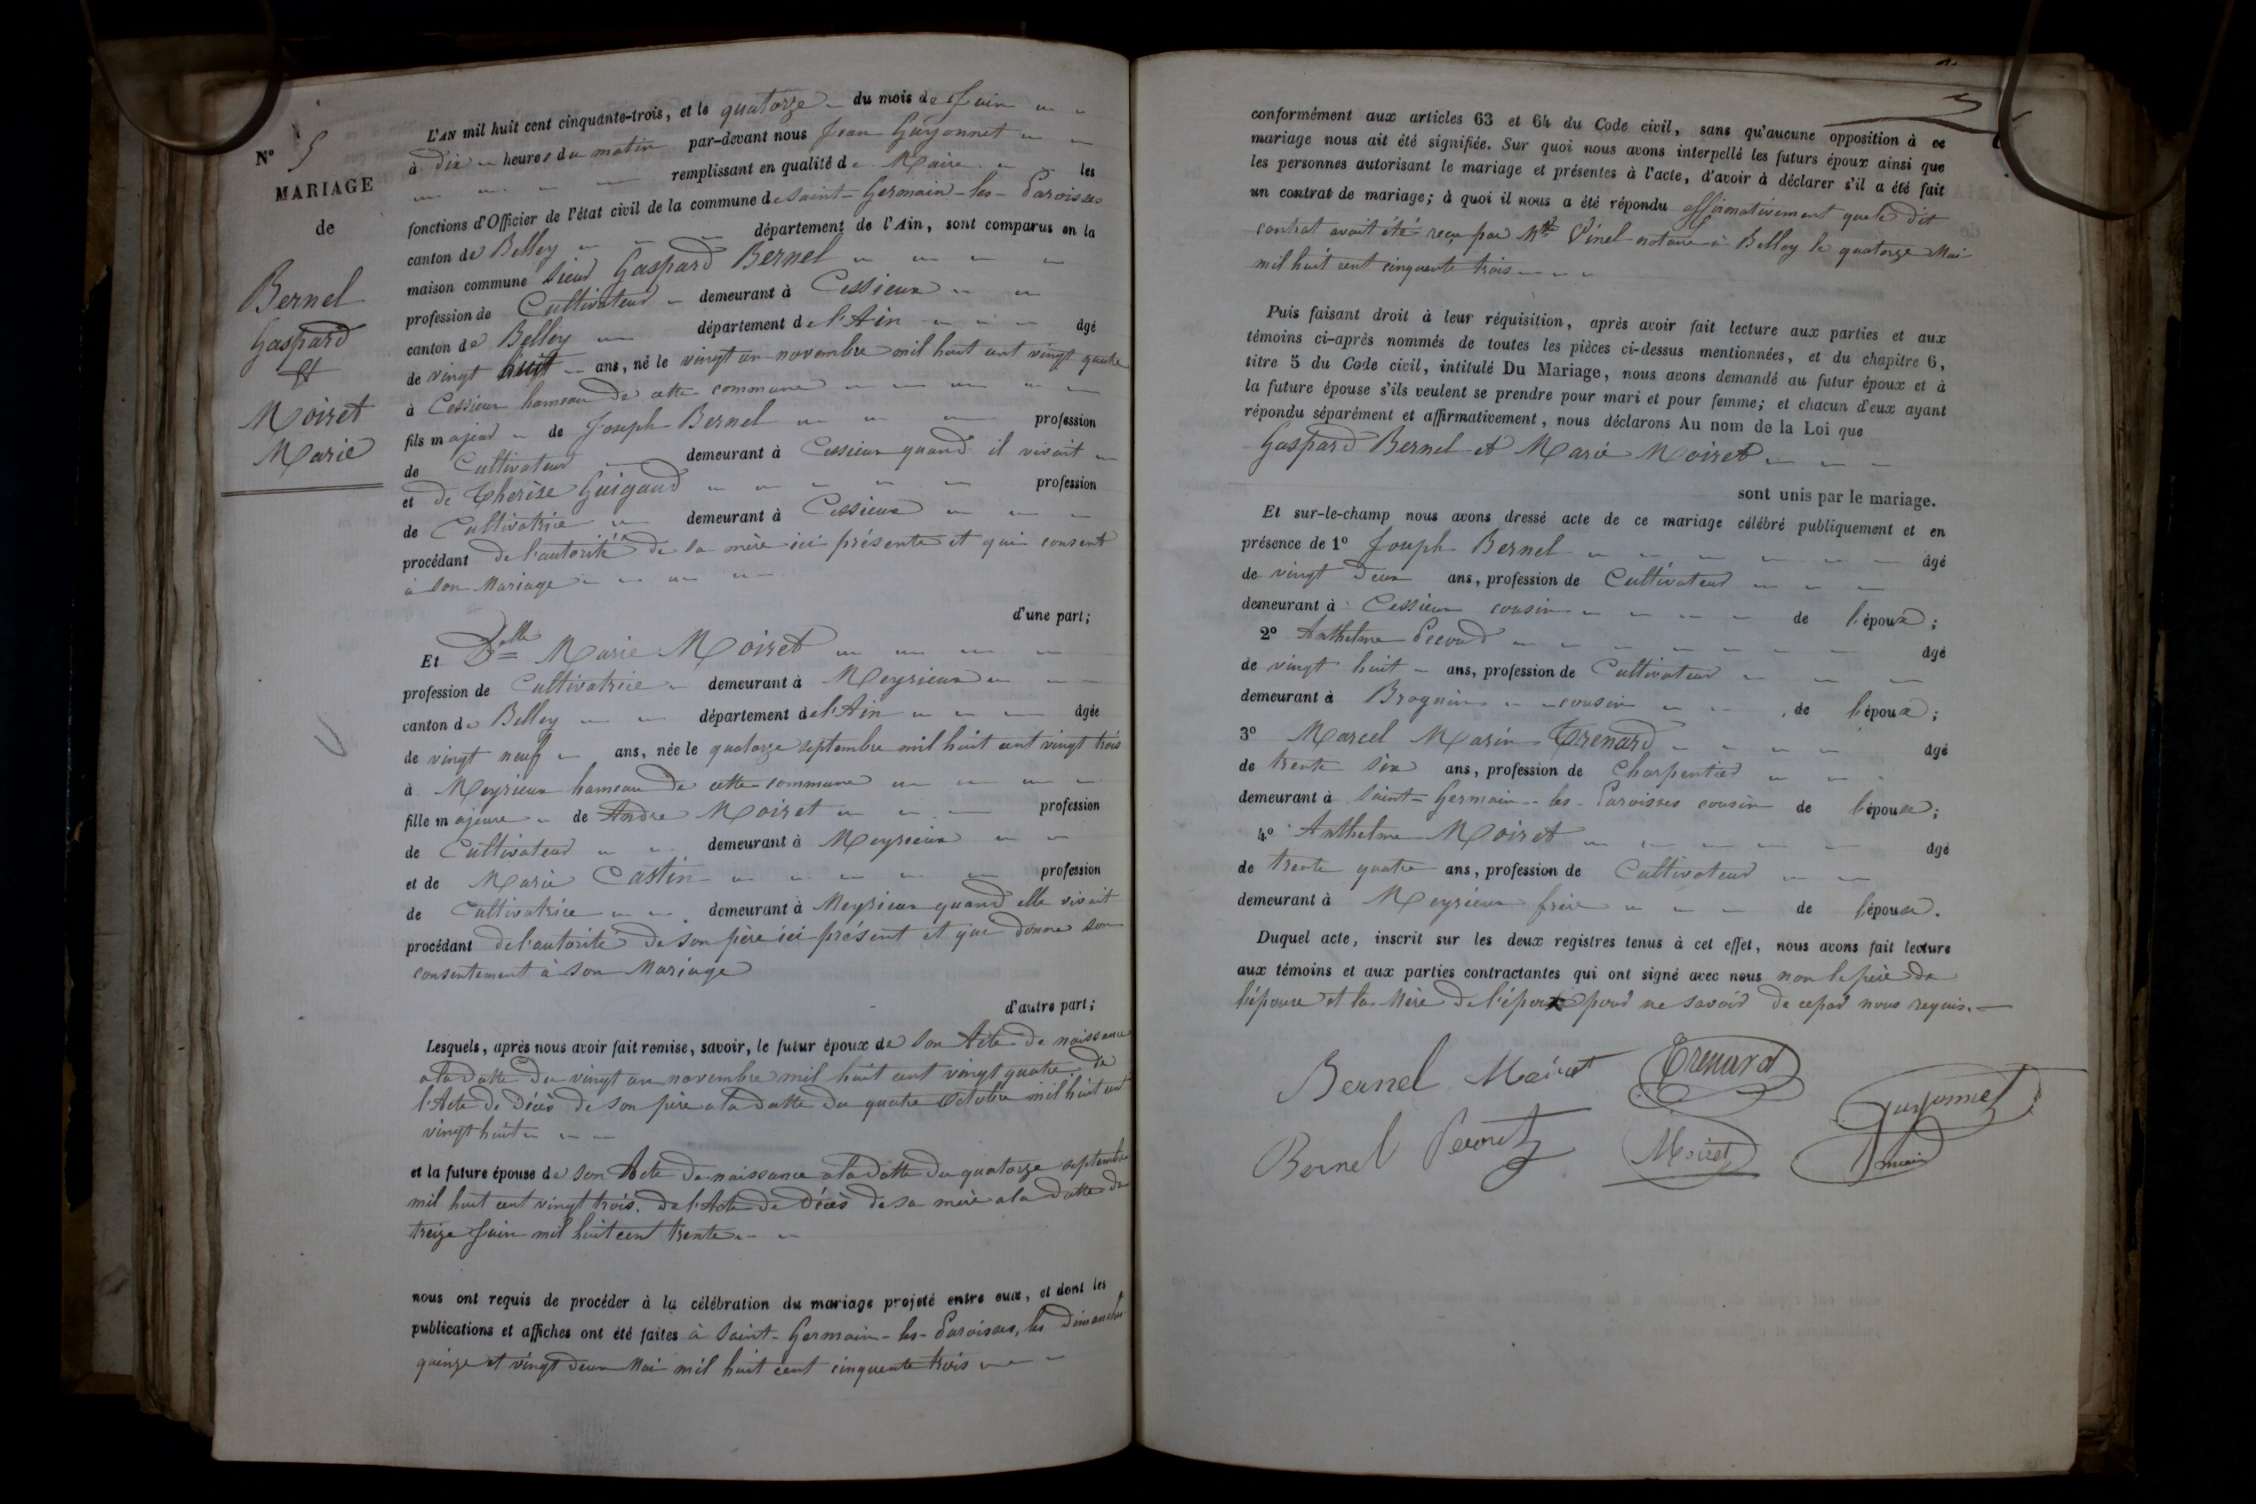 N° 5
MARIAGE
de
Bernel
Gaspard
et
Moiret
Marie
L'AN mil huit cent cinquante-trois, et le quatorze du mois de Juin
à dix heures du matin par-devant nous Jean Guyonnet
remplissant en qualité de Maire les
fonctions d'Officier de l'état civil de la commune de Saint-Germain-les-Paroisses
canton de Belley département de l'Ain, sont comparus en la
maison commune Sieur Gaspard Bernel
profession de Cultivateur demeurant à Cessieux
canton de Belley département de l'Ain âgé
de vingt huit ans, né le vingt un novembre mil huit cent vingt quatre
à Cessieux hameau de cette commune
fils majeur de Joseph Bernel profession
de Cultivateur demeurant à Cessieux quand il vivait
et de Therèse Guigaud profession
de Cultivatrice demeurant à Cessieux
procédant de l'autorité de la mère ici présente et qui consent
à son Mariage
d'une part;
Et Dlle Marie Moiret
profession de Cultivatrice demeurant à Meyrieux
canton de Belley département de l'Ain âgée
de vingt neuf ans, née le quatorze septembre mil huit cent vingt trois
à Meyrieux hameau de cette commune
fille majeure de Andre Moiret profession
de Cultivateur demeurant à Meyrieux
et de Marie Castin profession
de Cultivatrice demeurant à Meyrieux quand elle vivait
procédant de l'autorité de son père ici présent et qui donne son
consentement à son Mariage
d'autre part;
Lesquels, après nous avoir fait remise, savoir, le futur époux de son Acte de naissance
a la datte du vingt un novembre mil huit cent vingt quatre. de
l'Acte de Décès de son père a la datte du quatre Octobre mil huit cent
vingt huit
et la future épouse de son Acte de naissance a la datte du quatorze septembre
mil huit cent vingt trois. De l'Acte de Décès de sa mère a la datte du
treize Juin mil huit cent trente
nous ont requis de procéder à la célébration du mariage projeté entre eux, et dont les
publications et affiches ont été faites à Saint-Germain-les-Paroisses, les Dimanches
quinze et vingt deux Mai mil huit cent cinquante trois
conformément aux articles 63 et 64 du Code civil, sans qu'aucune opposition à ce
mariage nous ait été signifiée. Sur quoi nous avons interpellé les futurs époux ainsi que
les personnes autorisant le mariage et présentes à l'acte, d'avoir à déclarer s'il a été fait
un contrat de mariage; à quoi il nous a été répondu affirmativement que le dit
contrat avait été reçu par Mtre Pinel notaire à Belley le quatorze Mai
mil huit cent cinquante trois
Puis faisant droit à leur réquisition, après avoir fait lecture aux parties et aux
témoins ci-après nommés de toutes les pièces ci-dessus mentionnées, et du chapitre 6,
titre 5 du Code civil, intitulé Du Mariage, nous avons demandé au futur époux et à
la future épouse s'ils veulent se prendre pour mari et pour femme; et chacun d'eux ayant
répondu séparément et affirmativement, nous déclarons Au nom de la Loi que
Gaspard Bernel et Marie Moiret
sont unis par le mariage.
Et sur-le-champ nous avons dressé acte de ce mariage célébré publiquement et en
présence de 1° Joseph Bernel âgé
de vingt deux ans, profession de Cultivateur
demeurant à Cessieux cousin de l'époux;
2° Anthelme Pecoud âgé
de vingt huit ans, profession de Cultivateur
demeurant à Brognin cousin de l'époux;
3° Marcel Marin Trenard âgé
de trente six ans, profession de Charpentier
demeurant à Saint-Germain-les-Paroisses cousin de l'épouse;
4° Anthelme Moiret âgé
de trente quatre ans, profession de Cultivateur
demeurant à Meyrieux frère de l'épouse.
Duquel acte, inscrit sur les deux registres tenus à cet effet, nous avons fait lecture
aux témoins et aux parties contractantes qui ont signé avec nous non le père de
l'épouse et la Mère de l'époux pour ne savoir de ce par nous requis.
Bernel Moiret Trenard
Guyonnet
Bernel Moiret
maire